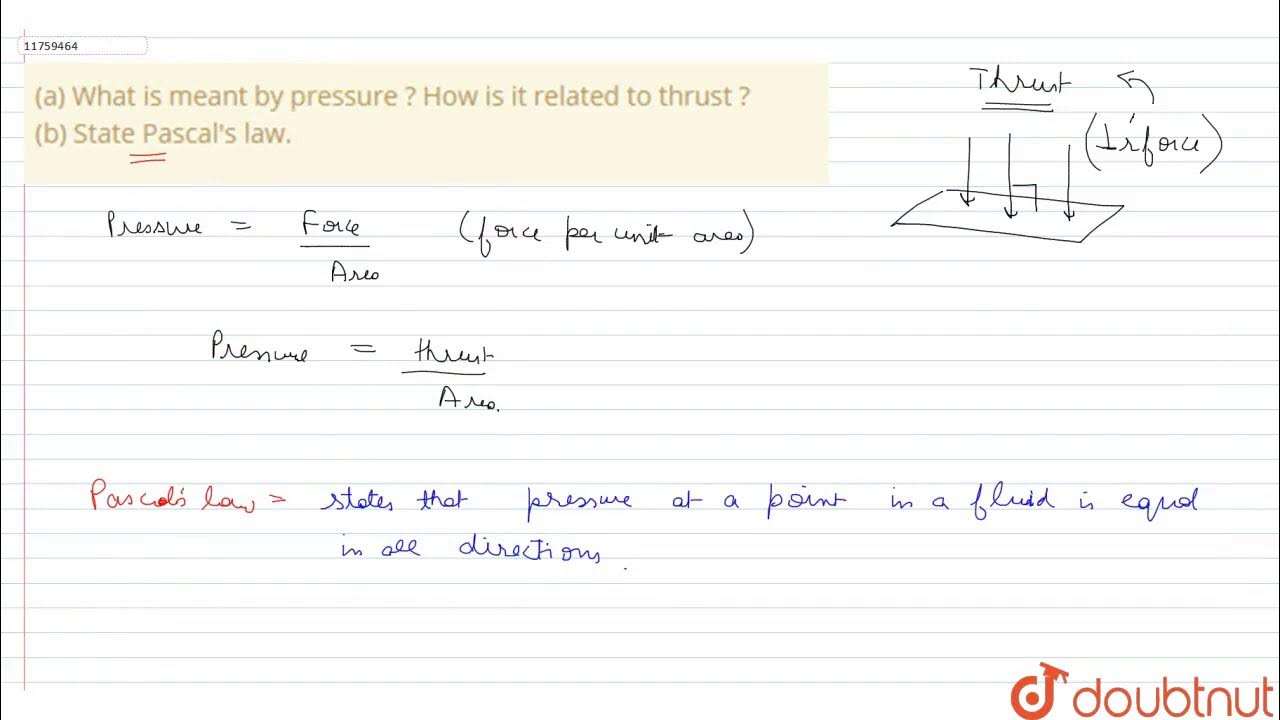 11759464
(a) What is meant by pressure ? How is it related to thrust ?
(b) State Pascal's law.
Thrust
(⊥r force)
Pressure = Force (force per unit area)
Area
Pressure = thrust
Area.
Pascal's law = states that pressure at a point in a fluid is equal
in all directions.
doubtnut